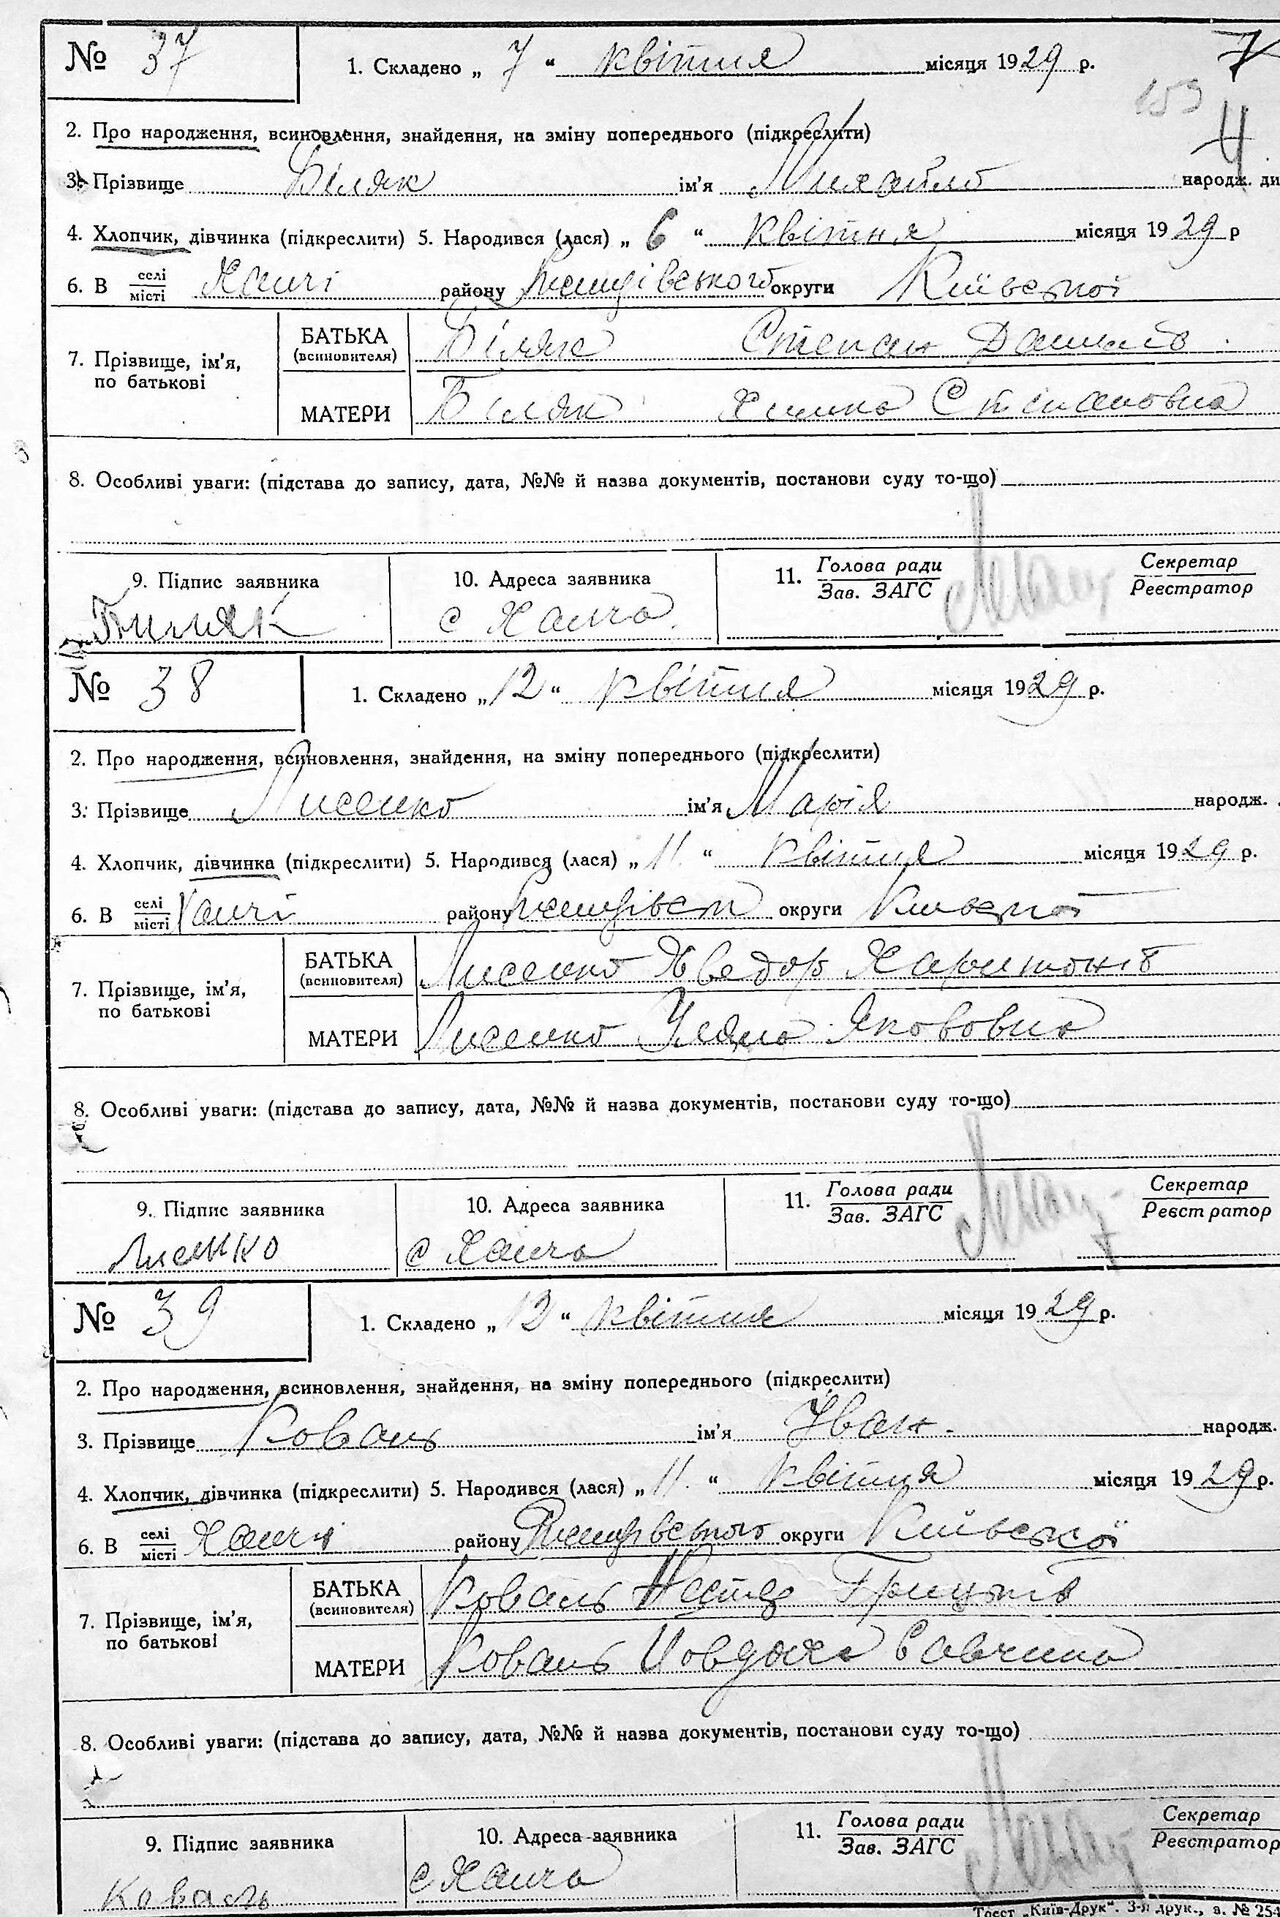 № 37 1. Складено „ 7 “ квітня місяця 1929 р. 7
159
4
2. Про народження, всиновлення, знайдення, на зміну попереднього (підкреслити)
3. Прізвище Біляк ім'я Михайло народж. ди
4. Хлопчик, дівчинка (підкреслити) 5. Народився (лася) „ 6 “ квітня місяця 1929 р
6. В селі місті Халчі району округи Київської
7. Прізвище, ім'я, по батькові БАТЬКА (всиновителя) Біляк Степан Данилів
МАТЕРИ Біляк Степановна
8. Особливі уваги: (підстава до запису, дата, №№ й назва документів, постанови суду то-що)
9. Підпис заявника 10. Адреса заявника 11. Голова ради Зав. ЗАГС Секретар Реєстратор
Биляк с Халча
№ 38 1. Складено „ 12 “ квітня місяця 1929 р.
2. Про народження, всиновлення, знайдення, на зміну попереднього (підкреслити)
3. Прізвище Лисенко ім'я Марія народж.
4. Хлопчик, дівчинка (підкреслити) 5. Народився (лася) „ 11 “ квітня місяця 1929 р.
6. В селі місті Халчі району округи
7. Прізвище, ім'я, по батькові БАТЬКА (всиновителя) Лисенко Хведор Харитонів
МАТЕРИ Лисенко Уляна Якововна
8. Особливі уваги: (підстава до запису, дата, №№ й назва документів, постанови суду то-що)
9. Підпис заявника 10. Адреса заявника 11. Голова ради Зав. ЗАГС Секретар Реєстратор
Лисенко с Халча
№ 39 1. Складено „ 12 “ квітня місяця 1929 р.
2. Про народження, всиновлення, знайдення, на зміну попереднього (підкреслити)
3. Прізвище Коваль ім'я Іван народж.
4. Хлопчик, дівчинка (підкреслити) 5. Народився (лася) „ 11 “ квітня місяця 1929 р.
6. В селі місті Халчі району округи Київської
7. Прізвище, ім'я, по батькові БАТЬКА (всиновителя) Коваль Грицьків
МАТЕРИ Коваль Йовдоха Савчина
8. Особливі уваги: (підстава до запису, дата, №№ й назва документів, постанови суду то-що)
9. Підпис заявника 10. Адреса заявника 11. Голова ради Зав. ЗАГС Секретар Реєстратор
Коваль с Халча
Трест „Київ-Друк“. 3-я друк., з. № 254